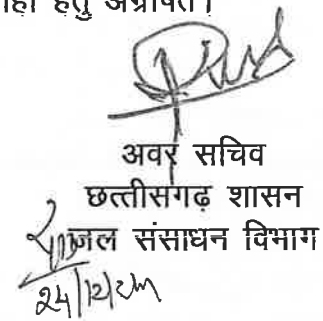 हेतु अग्रेषित।
अवर सचिव
छत्तीसगढ़ शासन
जल संसाधन विभाग